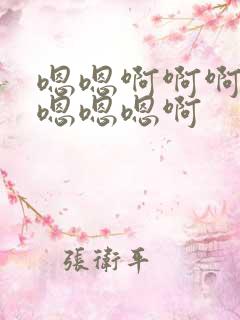 嗯嗯啊啊啊
嗯嗯嗯啊
張衛平